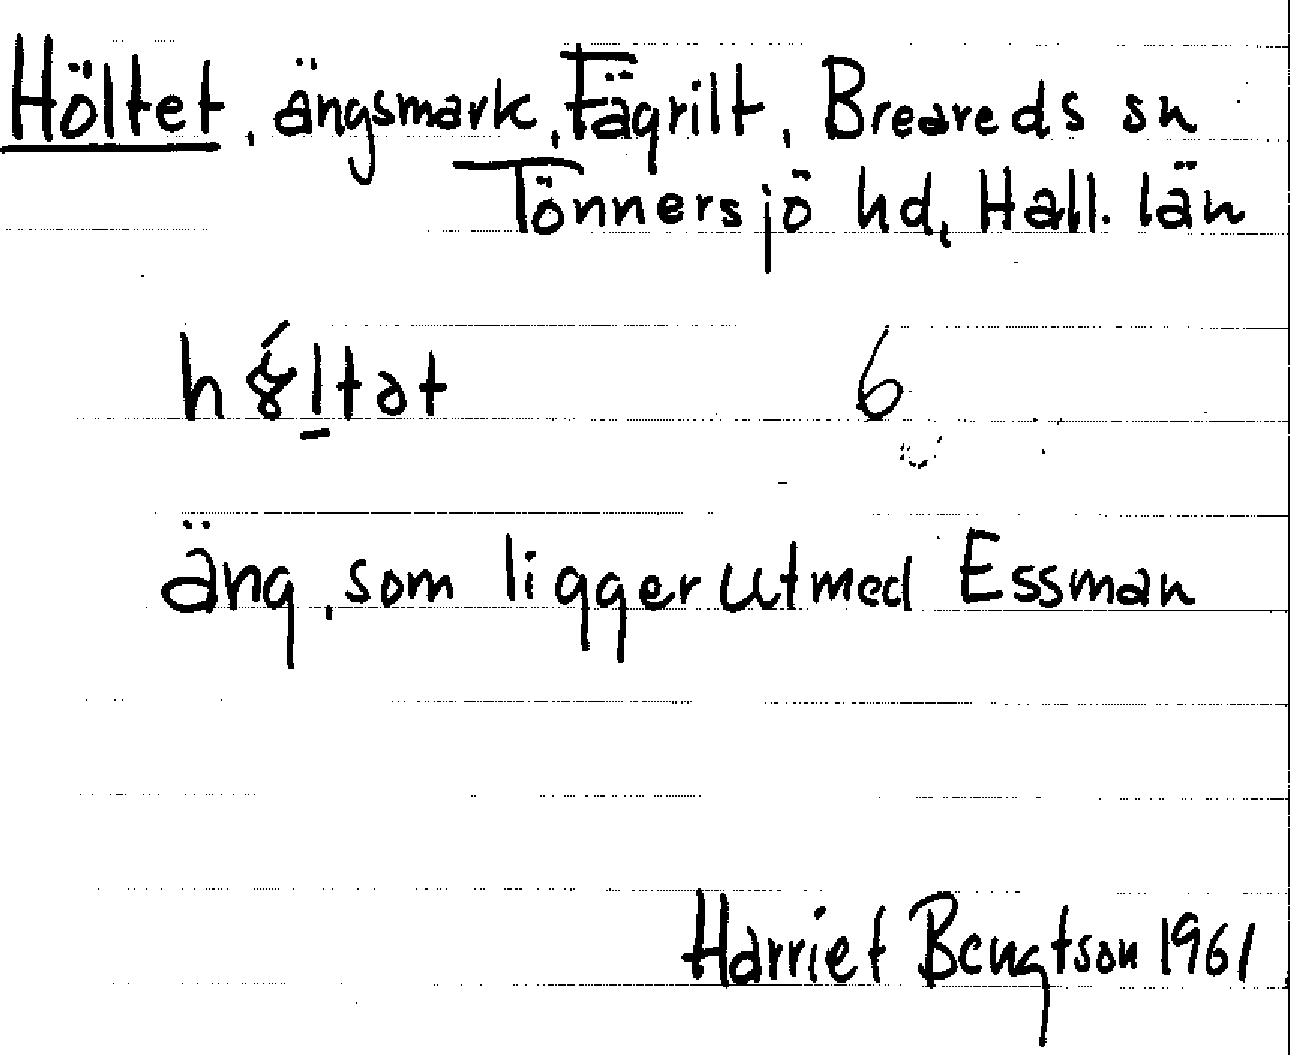 Höltet, ängsmark, Fägrilt, Breareds sn
Tönnersjö hd, Hall. län
6
äng, som ligger utmed Essman
Harriet Bengtson 1961